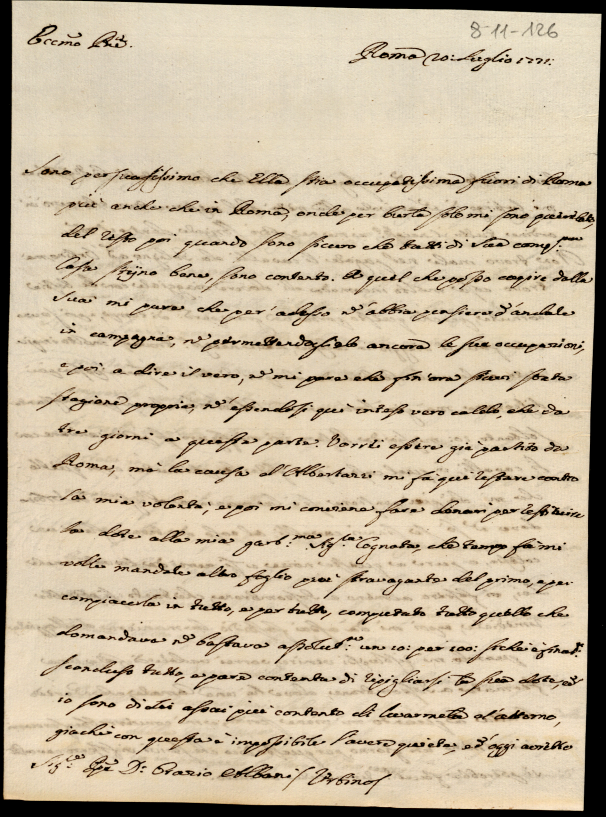 8-11-126
Eccmo Pnè.
Roma 20: Luglio 1771:
Sono persuasissimo che Ella stia occupatissima fuori di Roma
più anche che in Roma, onde per burla solo mi sono
del resto poi quando sono sicuro che tutti di Sua
Casa stijno bene, sono contento. A quel che posso capire dalla
Sua mi pare che per adesso ñ abbia pensiere d'andare
in campagna, ñ permettendoglielo ancora le sue occupazioni,
e poi a dire il vero, ñ mi pare che fin'ora stata
stagione propria, ñ essendosi qui inteso vero caldo, che da
tre giorni a questa parte. Vorrei essere già partito da
Roma, mà la causa d'Albertazzi mi fà qui restare contro
la mia volontà, e poi mi conviene fare denari per restituire
la dote alla mia garb.ma Sig.ra Cognata, che tempo fà mi
volle mandare altro foglio più stravagante del primo, e per
compiacerla in tutto, e per tutto, computato tutto quello che
domandava ñ bastava assolut.te un 10: per 100: sicche
sconcluso tutto, e pare contenta di ripigliarsi la sua dote, ed
io sono di lei assai più contento di levarmela d'attorno,
giache con questa è impossibile l'avere quiete, ed oggi avrebbe
Sig.re Pñpe D: Orazio Albani Urbino